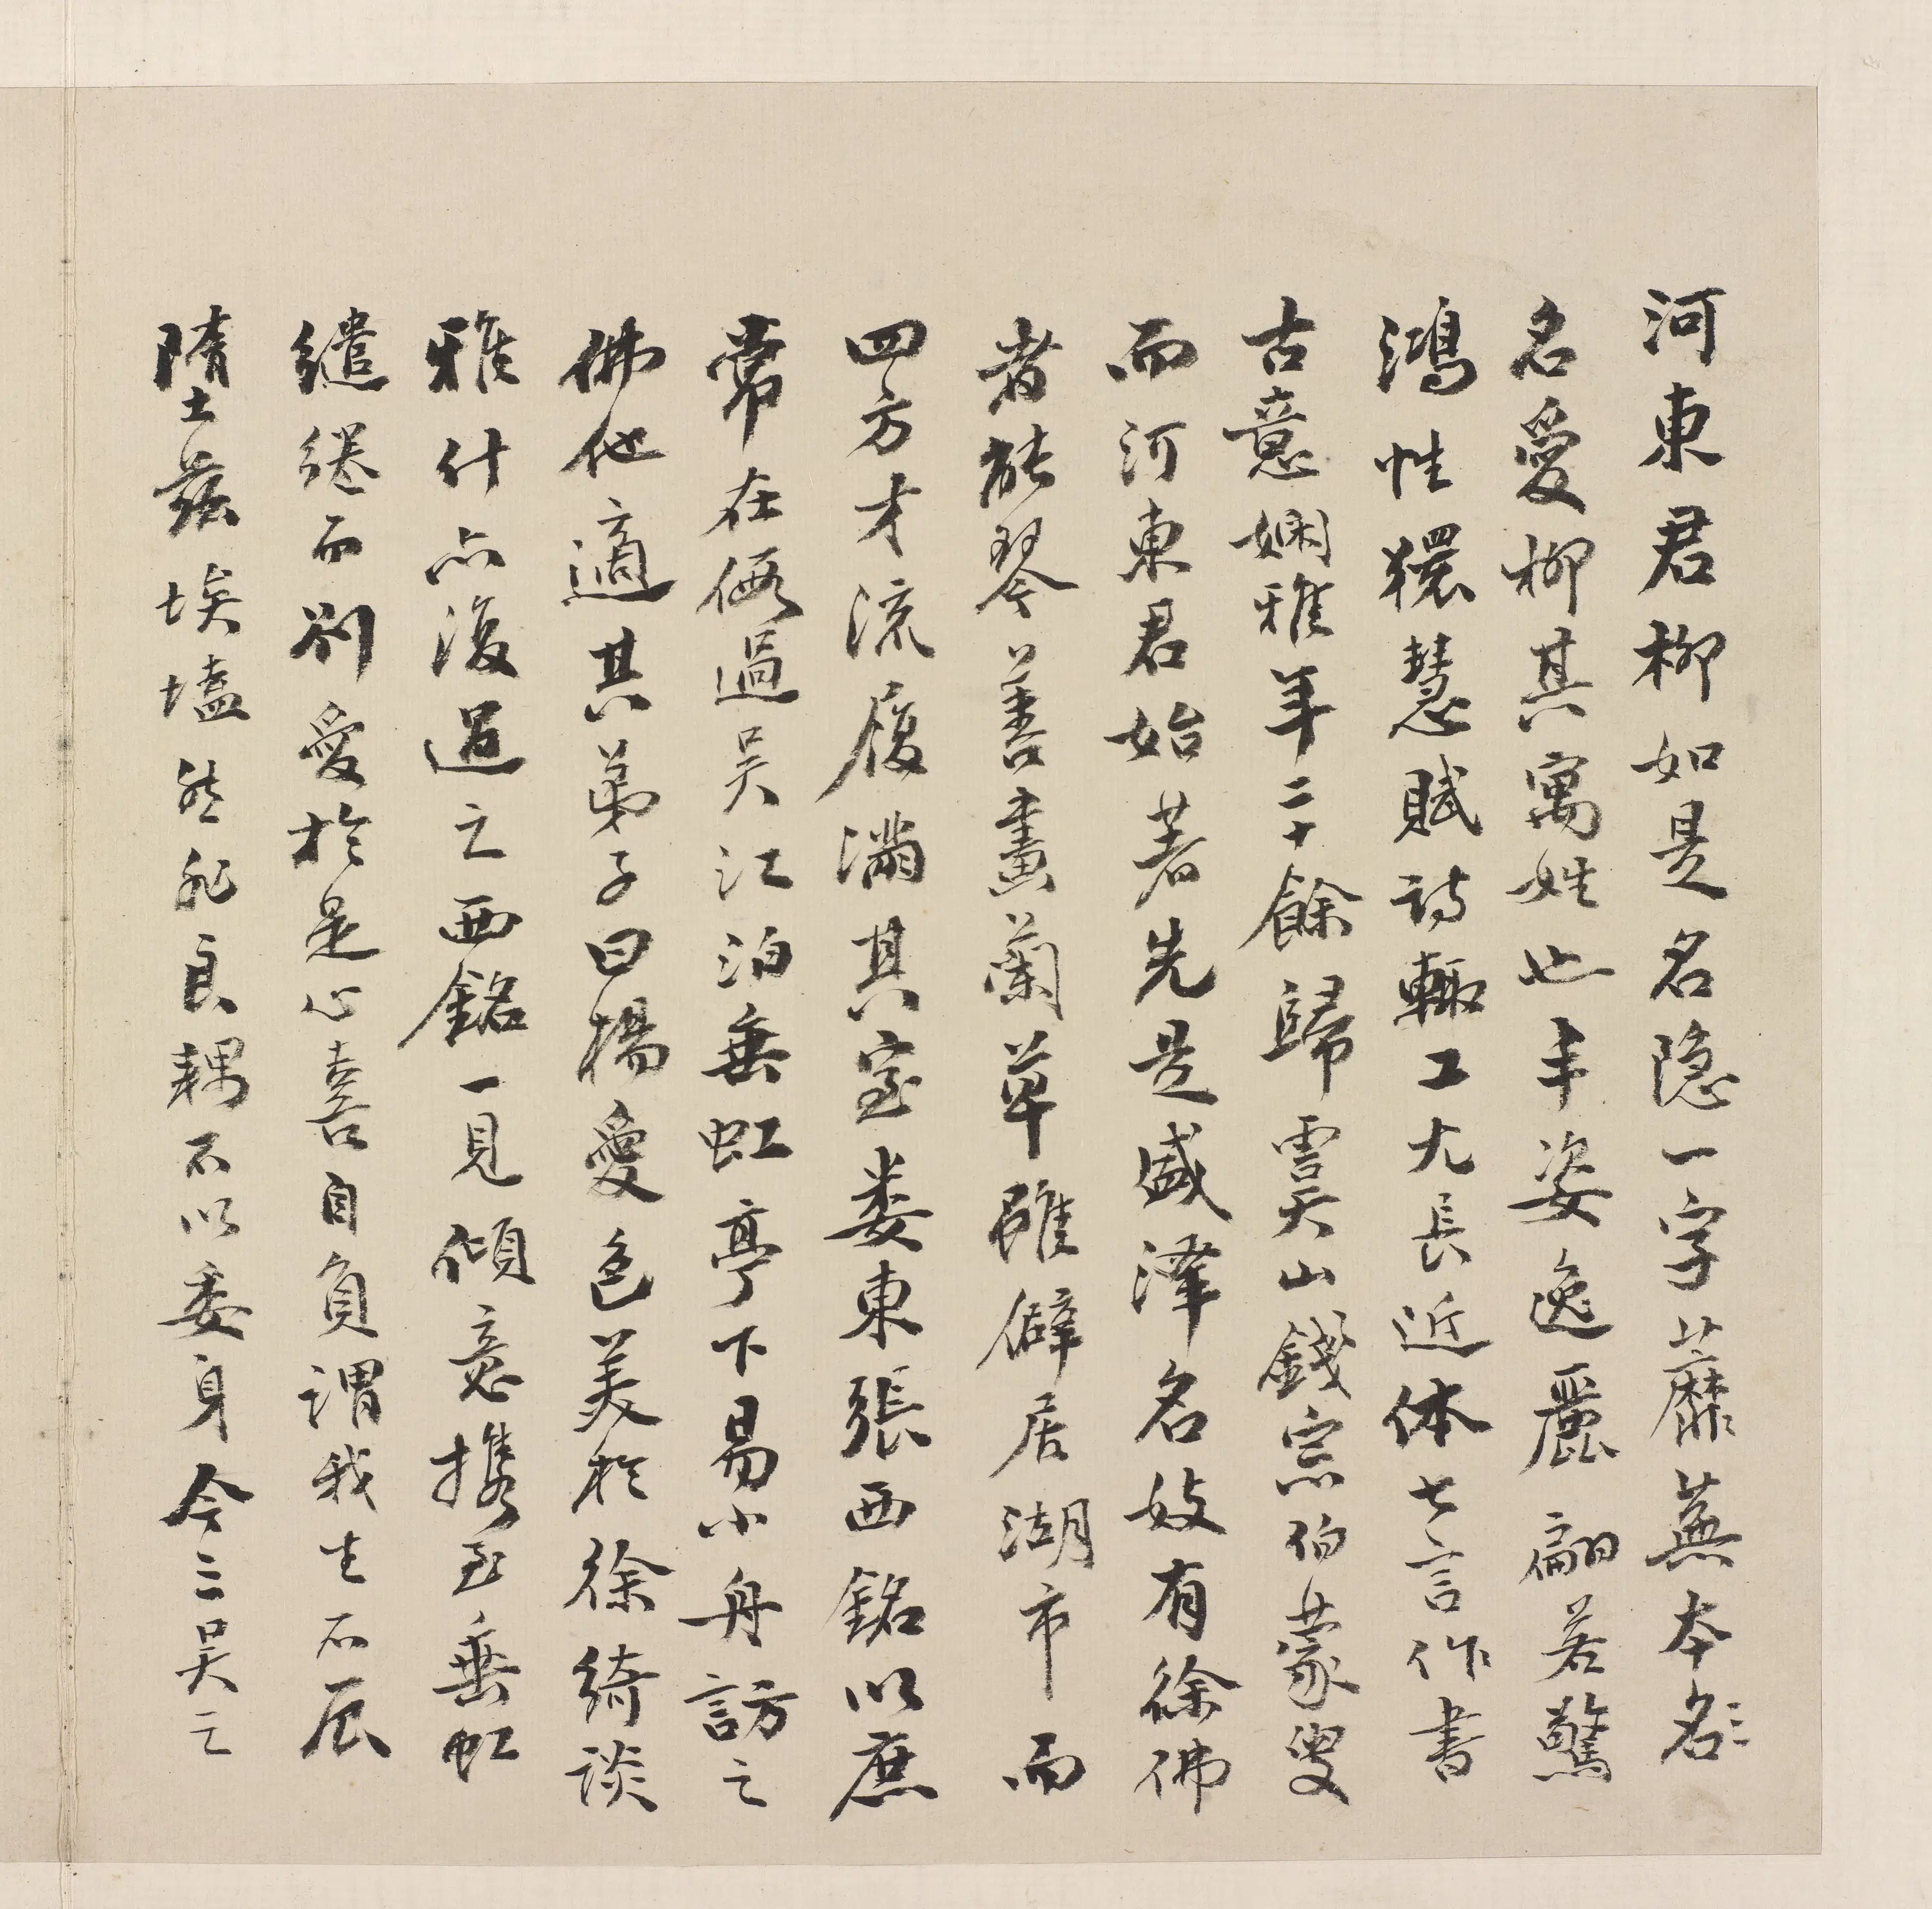 河東君柳如是名隐一字蘼蕪本名
名愛柳其寓姓也丰姿逸麗翩若驚
鴻性獧慧賦詩輒工尤長近体七言作書
古意嫻雅年二十餘歸虞山錢宗伯蒙叟
而河東君始著先是盛澤名妓有徐佛
者能琴善畫蘭草雖僻居湖市而
四方才流履滿其室婁東張西銘以庶
常在假過吳江泊垂虹亭下易小舟訪之
佛他適其弟子曰楊愛色美於徐綺談
雅什亦復過之西銘一見傾意携至垂虹
繾綣而別愛於是心喜自負謂我生不辰
墮茲埃壒然非良耦不以委身今三吳之